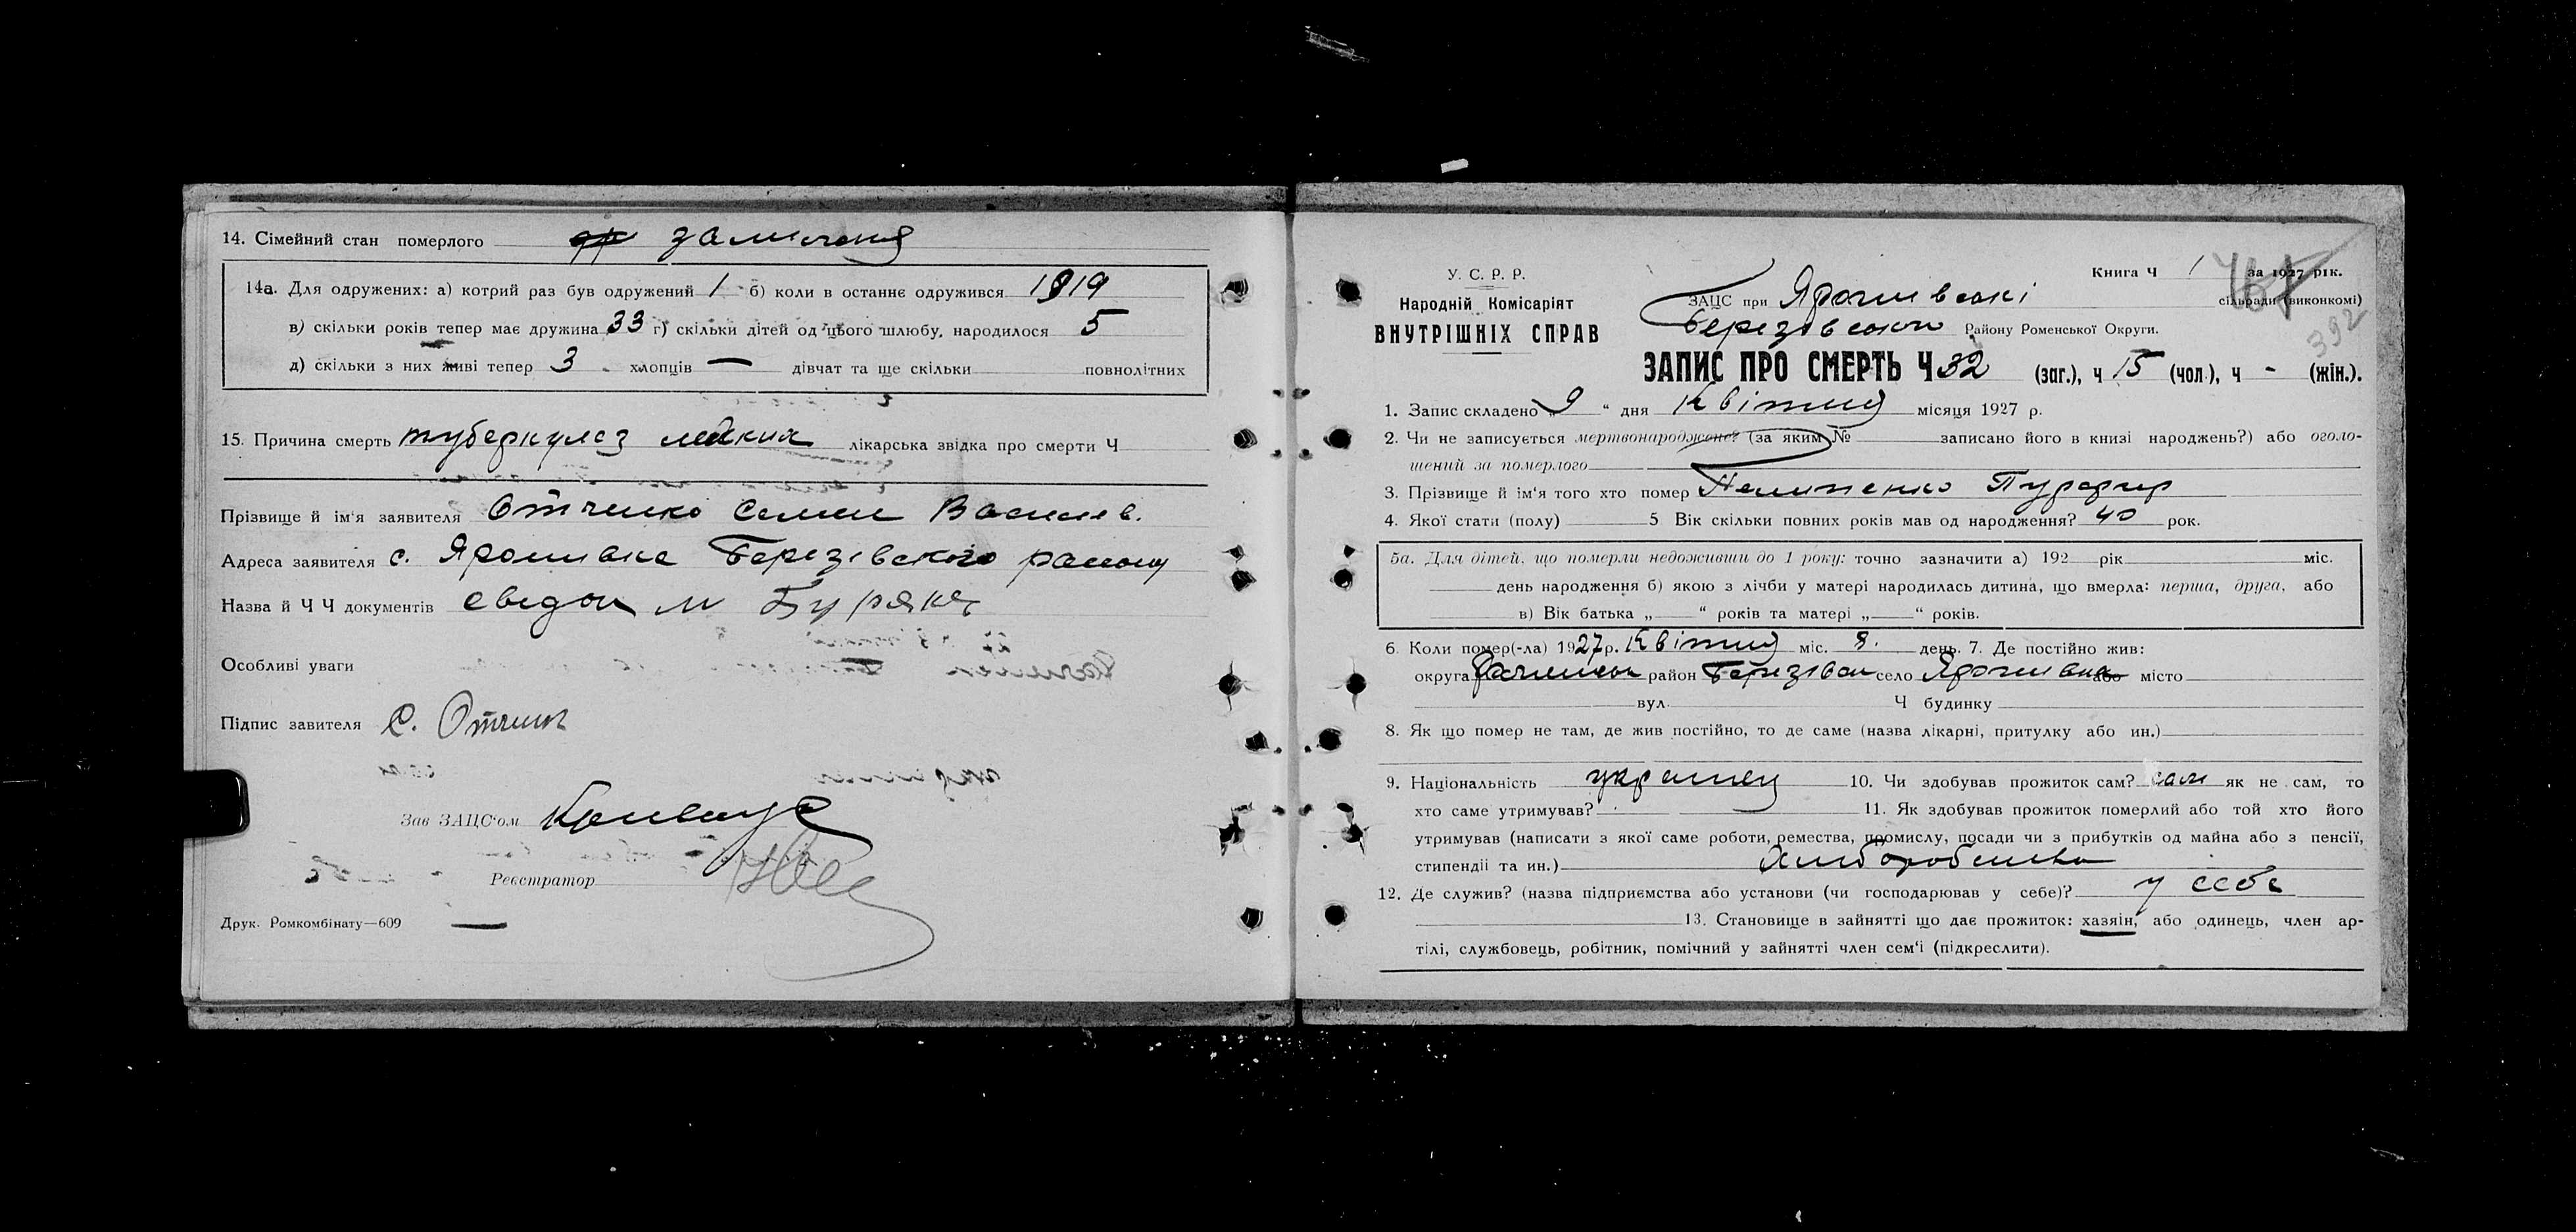 14. Сімейний стан померлого замужня
14а. Для одружених: а) котрий раз був одружений 1 б) коли в останнє одружився 1919
в) скільки років тепер має дружина 33 г) скільки дітей од цього шлюбу, народилося 5
д) скільки з них живі тепер 3 хлопців — дівчат та ще скільки повнолітних
15. Причина смерть туберкулез легких лікарська звідка про смерти Ч
Прізвище й ім'я заявителя Отченко Семен Васильев.
Адреса заявителя с. Ярошивка Березівського району
Назва й Ч Ч документів
Особливі уваги
Підпис завителя С. Отченк
Зав ЗАЦС'ом
Реєстратор
Друк. Ромкомбінату—609
У. С. Р. Р.
Народній Комісаріят
ВНУТРІШНІХ СПРАВ
Книга Ч 1 за 1927 рік.
ЗАЦС при Ярошивські сільради (виконкомі)
Березівського Району Роменської Округи.
392
ЗАПИС ПРО СМЕРТЬ Ч 32 (заг.), ч 15 (чол.), ч - (жін.).
1. Запис складено „9 “ дня Квітня місяця 1927 р.
2. Чи не записується мертвонароджене? (за яким № записано його в книзі народжень?) або оголо-
шений за померлого
3. Прізвище й ім'я того хто помер
4. Якої стати (полу) 5 Вік скільки повних років мав од народження? 40 рок.
5а. Для дітей, що померли недоживши до 1 року: точно зазначити а) 192 рік міс.
день народження б) якою з лічби у матері народилась дитина, що вмерла: перша, друга, або
в) Вік батька „ “ років та матері „ “ років.
6. Коли помер(-ла) 1927 р. Квітня міс. 8. день. 7. Де постійно жив:
округа Роменськ район Березівськ село Ярошивка або місто
вул. Ч будинку
8. Як що помер не там, де жив постійно, то де саме (назва лікарні, притулку або ин.)
9. Національність украинец 10. Чи здобував прожиток сам? сам як не сам, то
хто саме утримував? 11. Як здобував прожиток померлий або той хто його
утримував (написати з якої саме роботи, ремества, промислу, посади чи з прибутків од майна або з пенсії,
стипендії та ин.) Хлиборобство
12. Де служив? (назва підприємства або установи (чи господарював у себе)? у себе
13. Становище в зайнятті що дає прожиток: хазяїн, або одинець, член ар-
тілі, службовець, робітник, помічний у зайнятті член сем'ї (підкреслити).